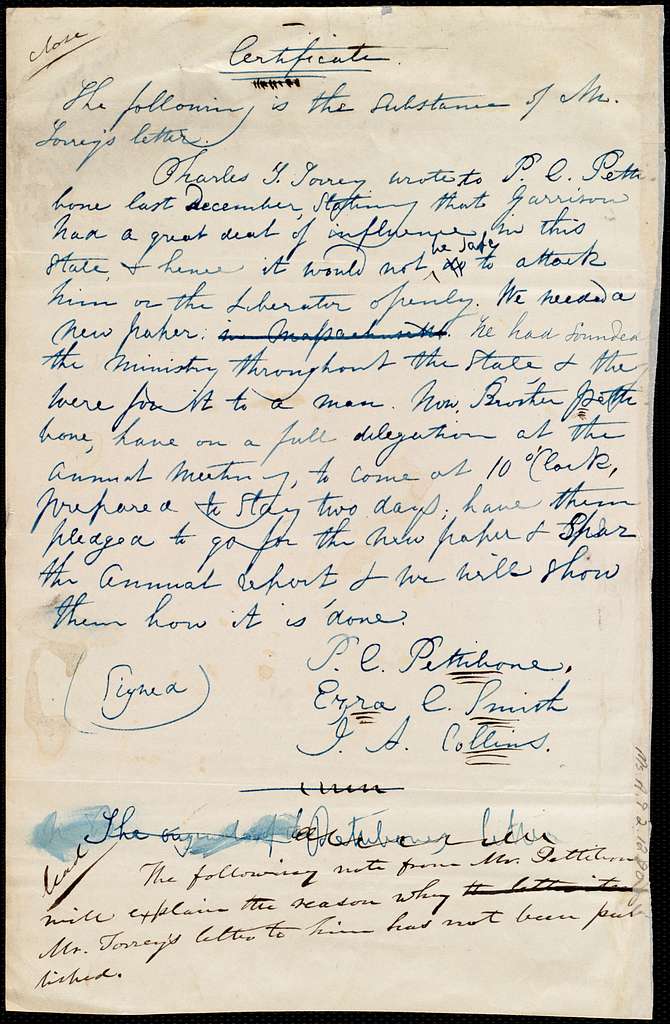 close
Certificate.
The following is the substance of Mr.
Torrey's letter.
Charles T. Torrey wrote to P. C. Petti-
bone last December, stating that Garrison
had a great deal of influence in this
State, & hence it would not be safe to attack
him or the Liberator openly. We needed a
new paper. in Massachusetts. He had sounded
the ministry throughout the State & they
were for it to a man. Now, Brother Petti-
bone, have on a full delegation at the
annual meeting, to come at 10 o'Clock,
prepared to stay two days; have them
pledged to go for the new paper &
the Annual report & we will show
them how it is done.
P. C. Pettibone.
(Signed)
Ezra C. Smith
J. A. Collins.
The Pettibone's letter
lead
The following note from Mr. Pettibone
will explain the reason why
Mr. Torrey's letter to him has not been pub-
lished.